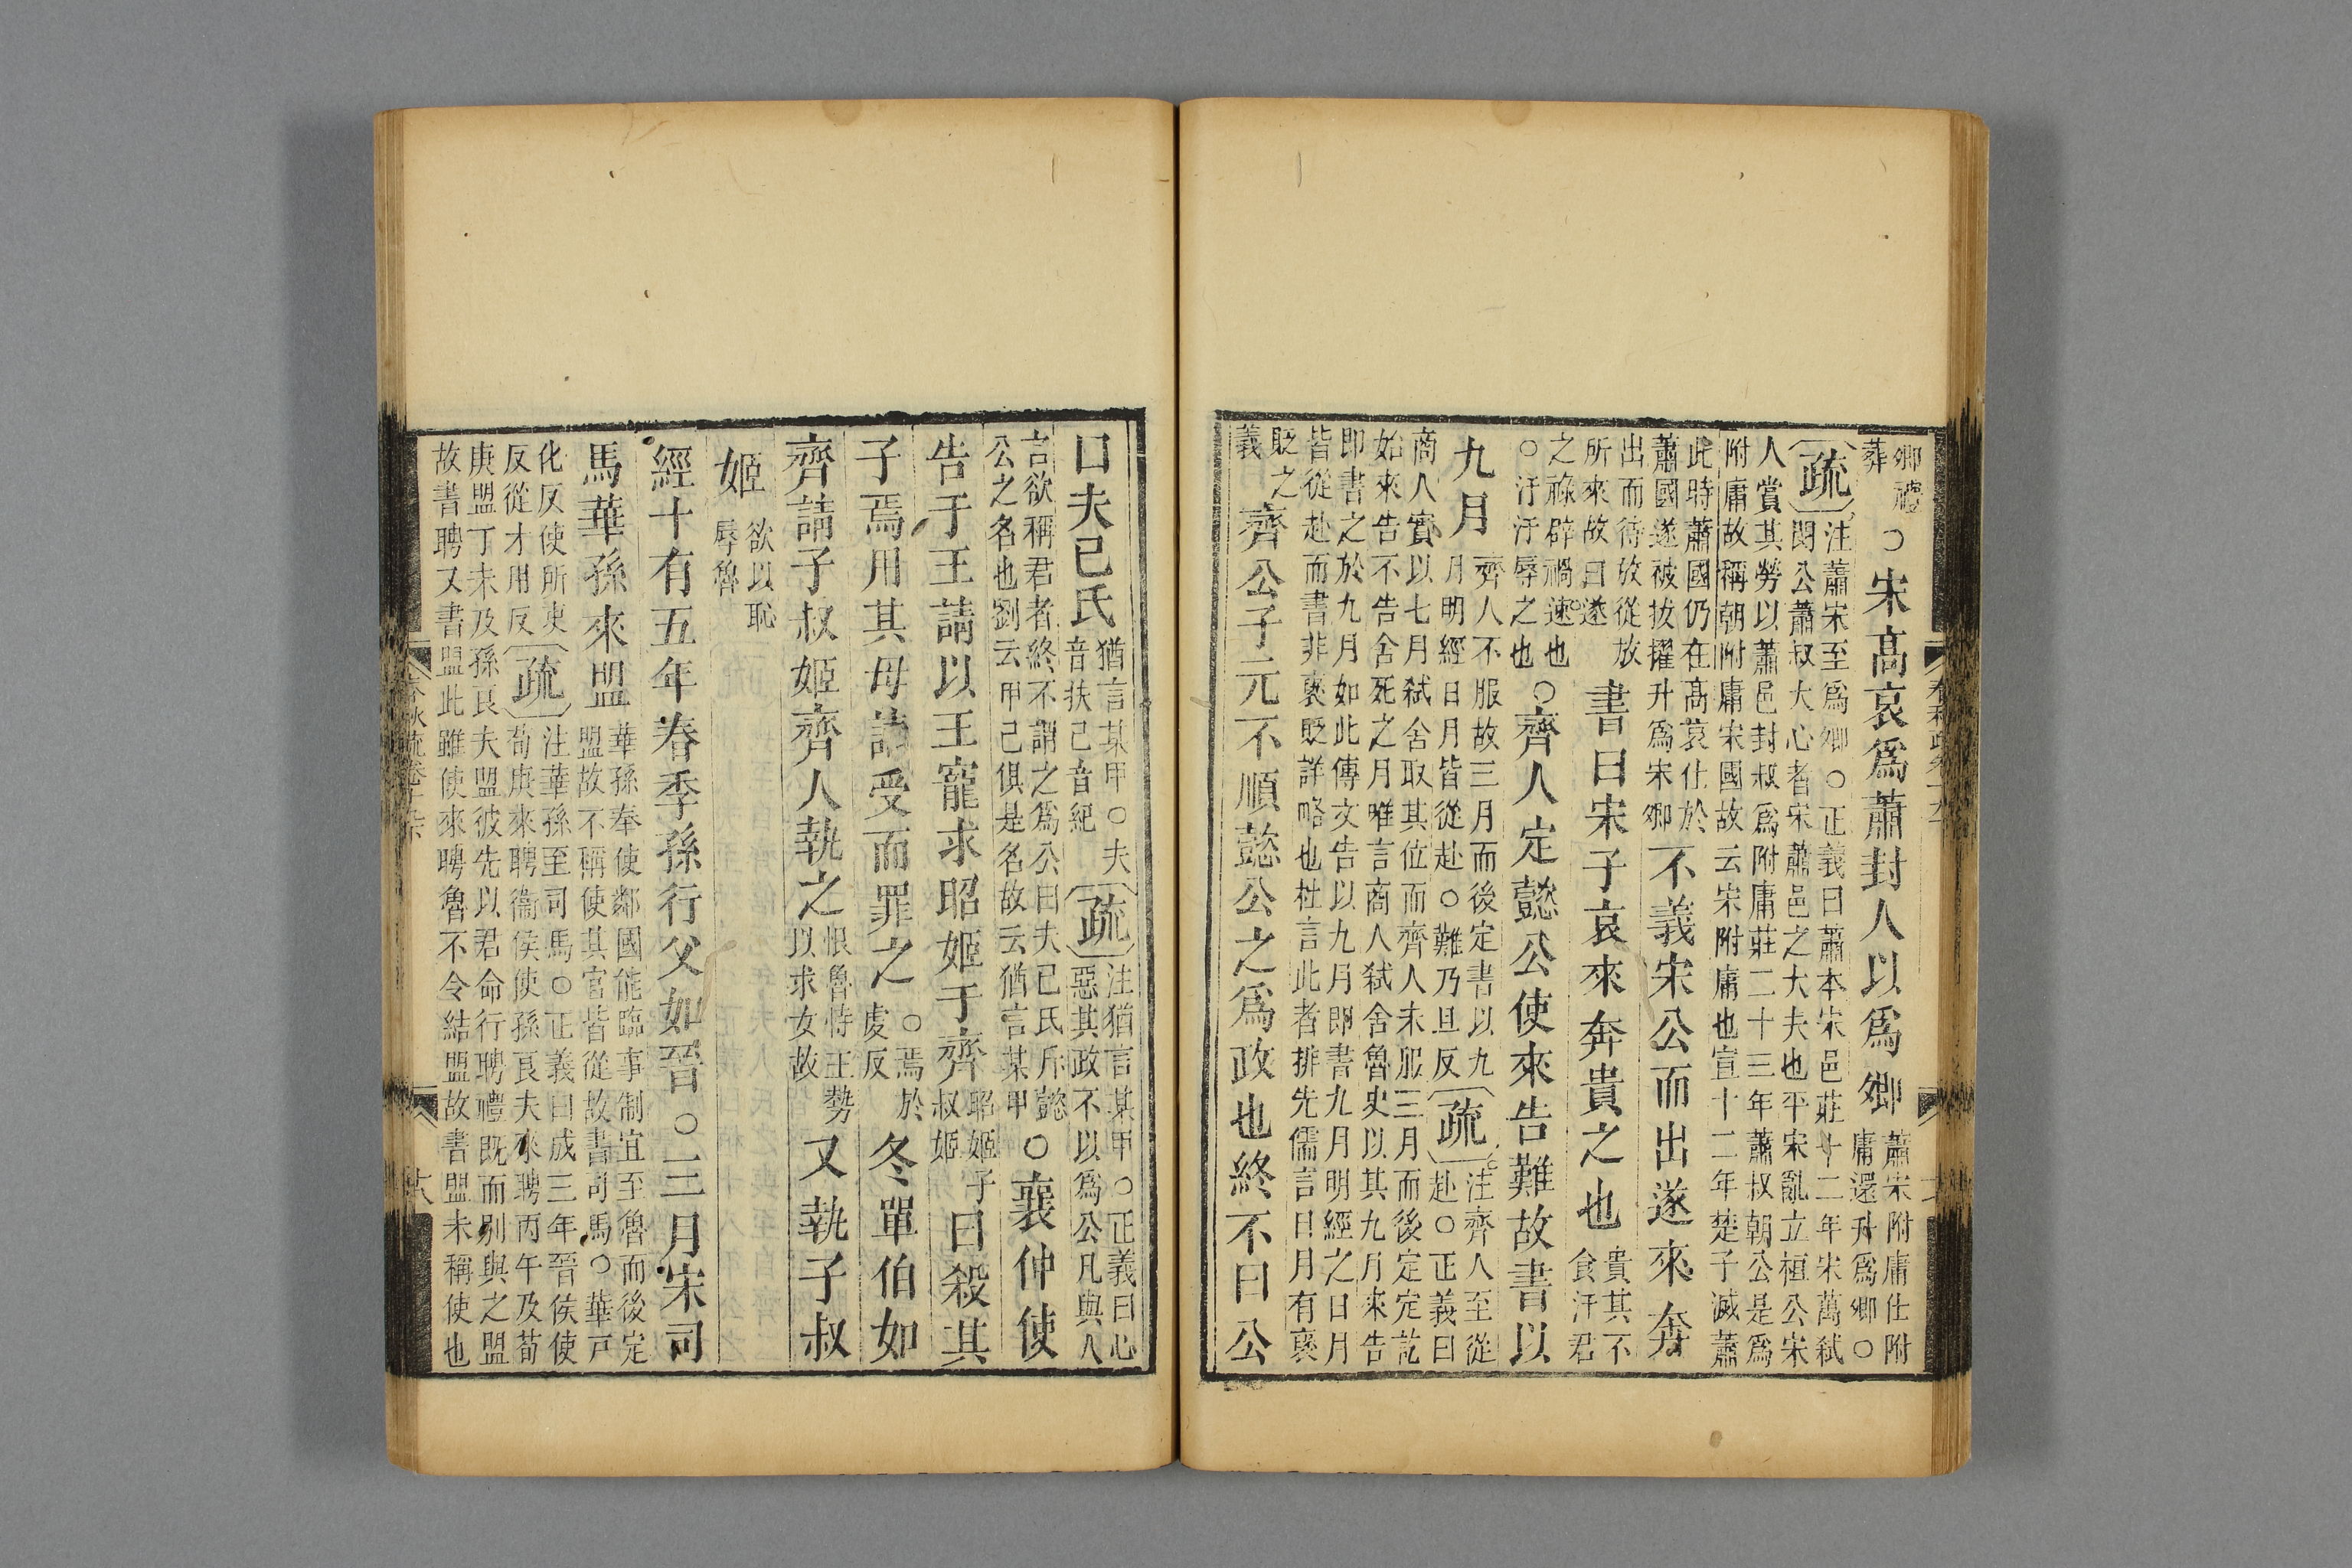 卿禮
葬
○宋高哀爲蕭封人以爲卿
蕭宋附庸仕附
庸還升爲卿○
疏
注蕭宋至爲卿○正義曰蕭本宋邑莊十二年宋萬弑
閔公蕭叔大心者宋蕭邑之大夫也平宋亂立桓公宋
人賞其勞以蕭邑封叔爲附庸莊二十三年蕭叔朝公是爲
附庸故稱朝附庸宋國故云宋附庸也宣十二年楚子滅蕭
此時蕭國仍在高哀仕於
蕭國遂被拔擢升爲宋卿
不義宋公而出遂來奔
出而待放從放
所來故曰遂
書曰宋子哀來奔貴之也
貴其不
食汙君
之祿辟禍速也
○汙汙辱之也
○齊人定懿公使來告難故書以
九月
齊人不服故三月而後定書以九
月明經日月皆從赴○難乃旦反
疏
注齊人至從
赴○正義曰
商人實以七月弑舍取其位而齊人未服三月而後定定訖
始來告不告舍死之月唯言商人弑舍魯史以其九月來告
即書之於九月如此傳文告以九月即書九月明經之日月
皆從赴而書非褒貶詳略也杜言此者排先儒言日月有褒
貶之
義
齊公子元不順懿公之爲政也終不曰公
曰夫己氏
猶言某甲○夫
音扶己音紀
疏
注猶言某甲○正義曰心
惡其政不以爲公凡與人
言欲稱君者終不謂之爲公曰夫己氏斥懿
公之名也劉云甲己俱是名故云猶言某甲
○襄仲使
告于王請以王寵求昭姬于齊
昭姬子
叔姬
曰殺其
子焉用其母請受而罪之
○焉於
虔反
冬單伯如
齊請子叔姬齊人執之
恨魯恃王勢
以求女故
又執子叔
姬
欲以恥
辱魯
經十有五年春季孫行父如晉○三月宋司
馬華孫來盟
華孫奉使鄰國能臨事制宜至魯而後定
盟故不稱使其官皆從故書司馬○華戸
化反使所吏
反從才用反
疏
注華孫至司馬○正義曰成三年晉侯使
荀庚來聘衞侯使孫良夫來聘丙午及荀
庚盟丁未及孫良夫盟彼先以君命行聘禮既而別與之盟
故書聘又書盟此雖使來聘魯不令結盟故書盟未稱使也